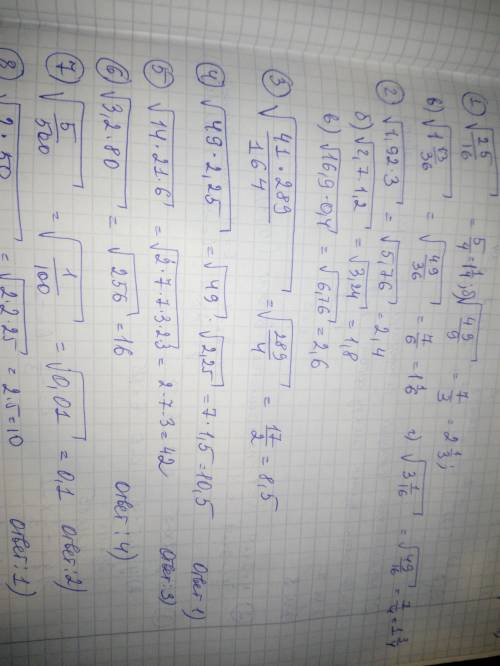 ① √(25/16) = 5/4 = 1 1/4; б) √(49/9) = 7/3 = 2 1/3;
в) √(1 13/36) = √(49/36) = 7/6 = 1 1/6 г) √(3 1/16) = √(49/16) = 7/4 = 1 3/4
② √1,92·3 = √5,76 = 2,4
б) √2,7·1,2 = √3,24 = 1,8
в) √16,9·0,4 = √6,76 = 2,6
③ √(41·289/164) = √(289/4) = 17/2 = 8,5
④ √49·2,25 = √49·√2,25 = 7·1,5 = 10,5 ответ: 1)
⑤ √14·21·6 = √2·7·7·3·2·3 = 2·7·3 = 42 ответ: 3)
⑥ √3,2·80 = √256 = 16 ответ: 4)
⑦ √(5/500) = √(1/100) = √0,01 = 0,1 ответ: 2)
⑧ √2·50 = √2·2·25 = 2·5 = 10 ответ: 1)